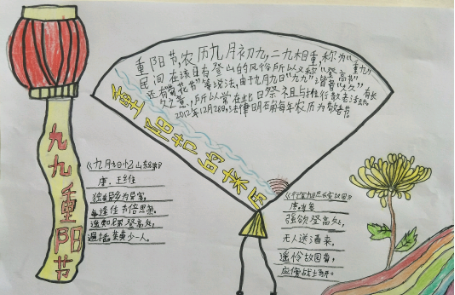 重阳节,农历九月初九,二九相重,称为"重九"
民间在该日有登高的风俗,所以又称"登高节"
还有"菊花节"等说法,由于九月九日"九九"谐音"久久"有长
久之意,所以常在此日祭祖与推行敬老活动
2012年12月28日,法律明确每年农历九月初九为敬老节
重阳节的来历
九九重阳节
《九月九日忆山东兄弟》
唐.王维
独在异乡为异客,
每逢佳节倍思亲。
遥知兄弟登高处,
遍插茱萸少一人。
强欲登高处,
无人送酒来。
遥怜故园菊,
应傍战场开。